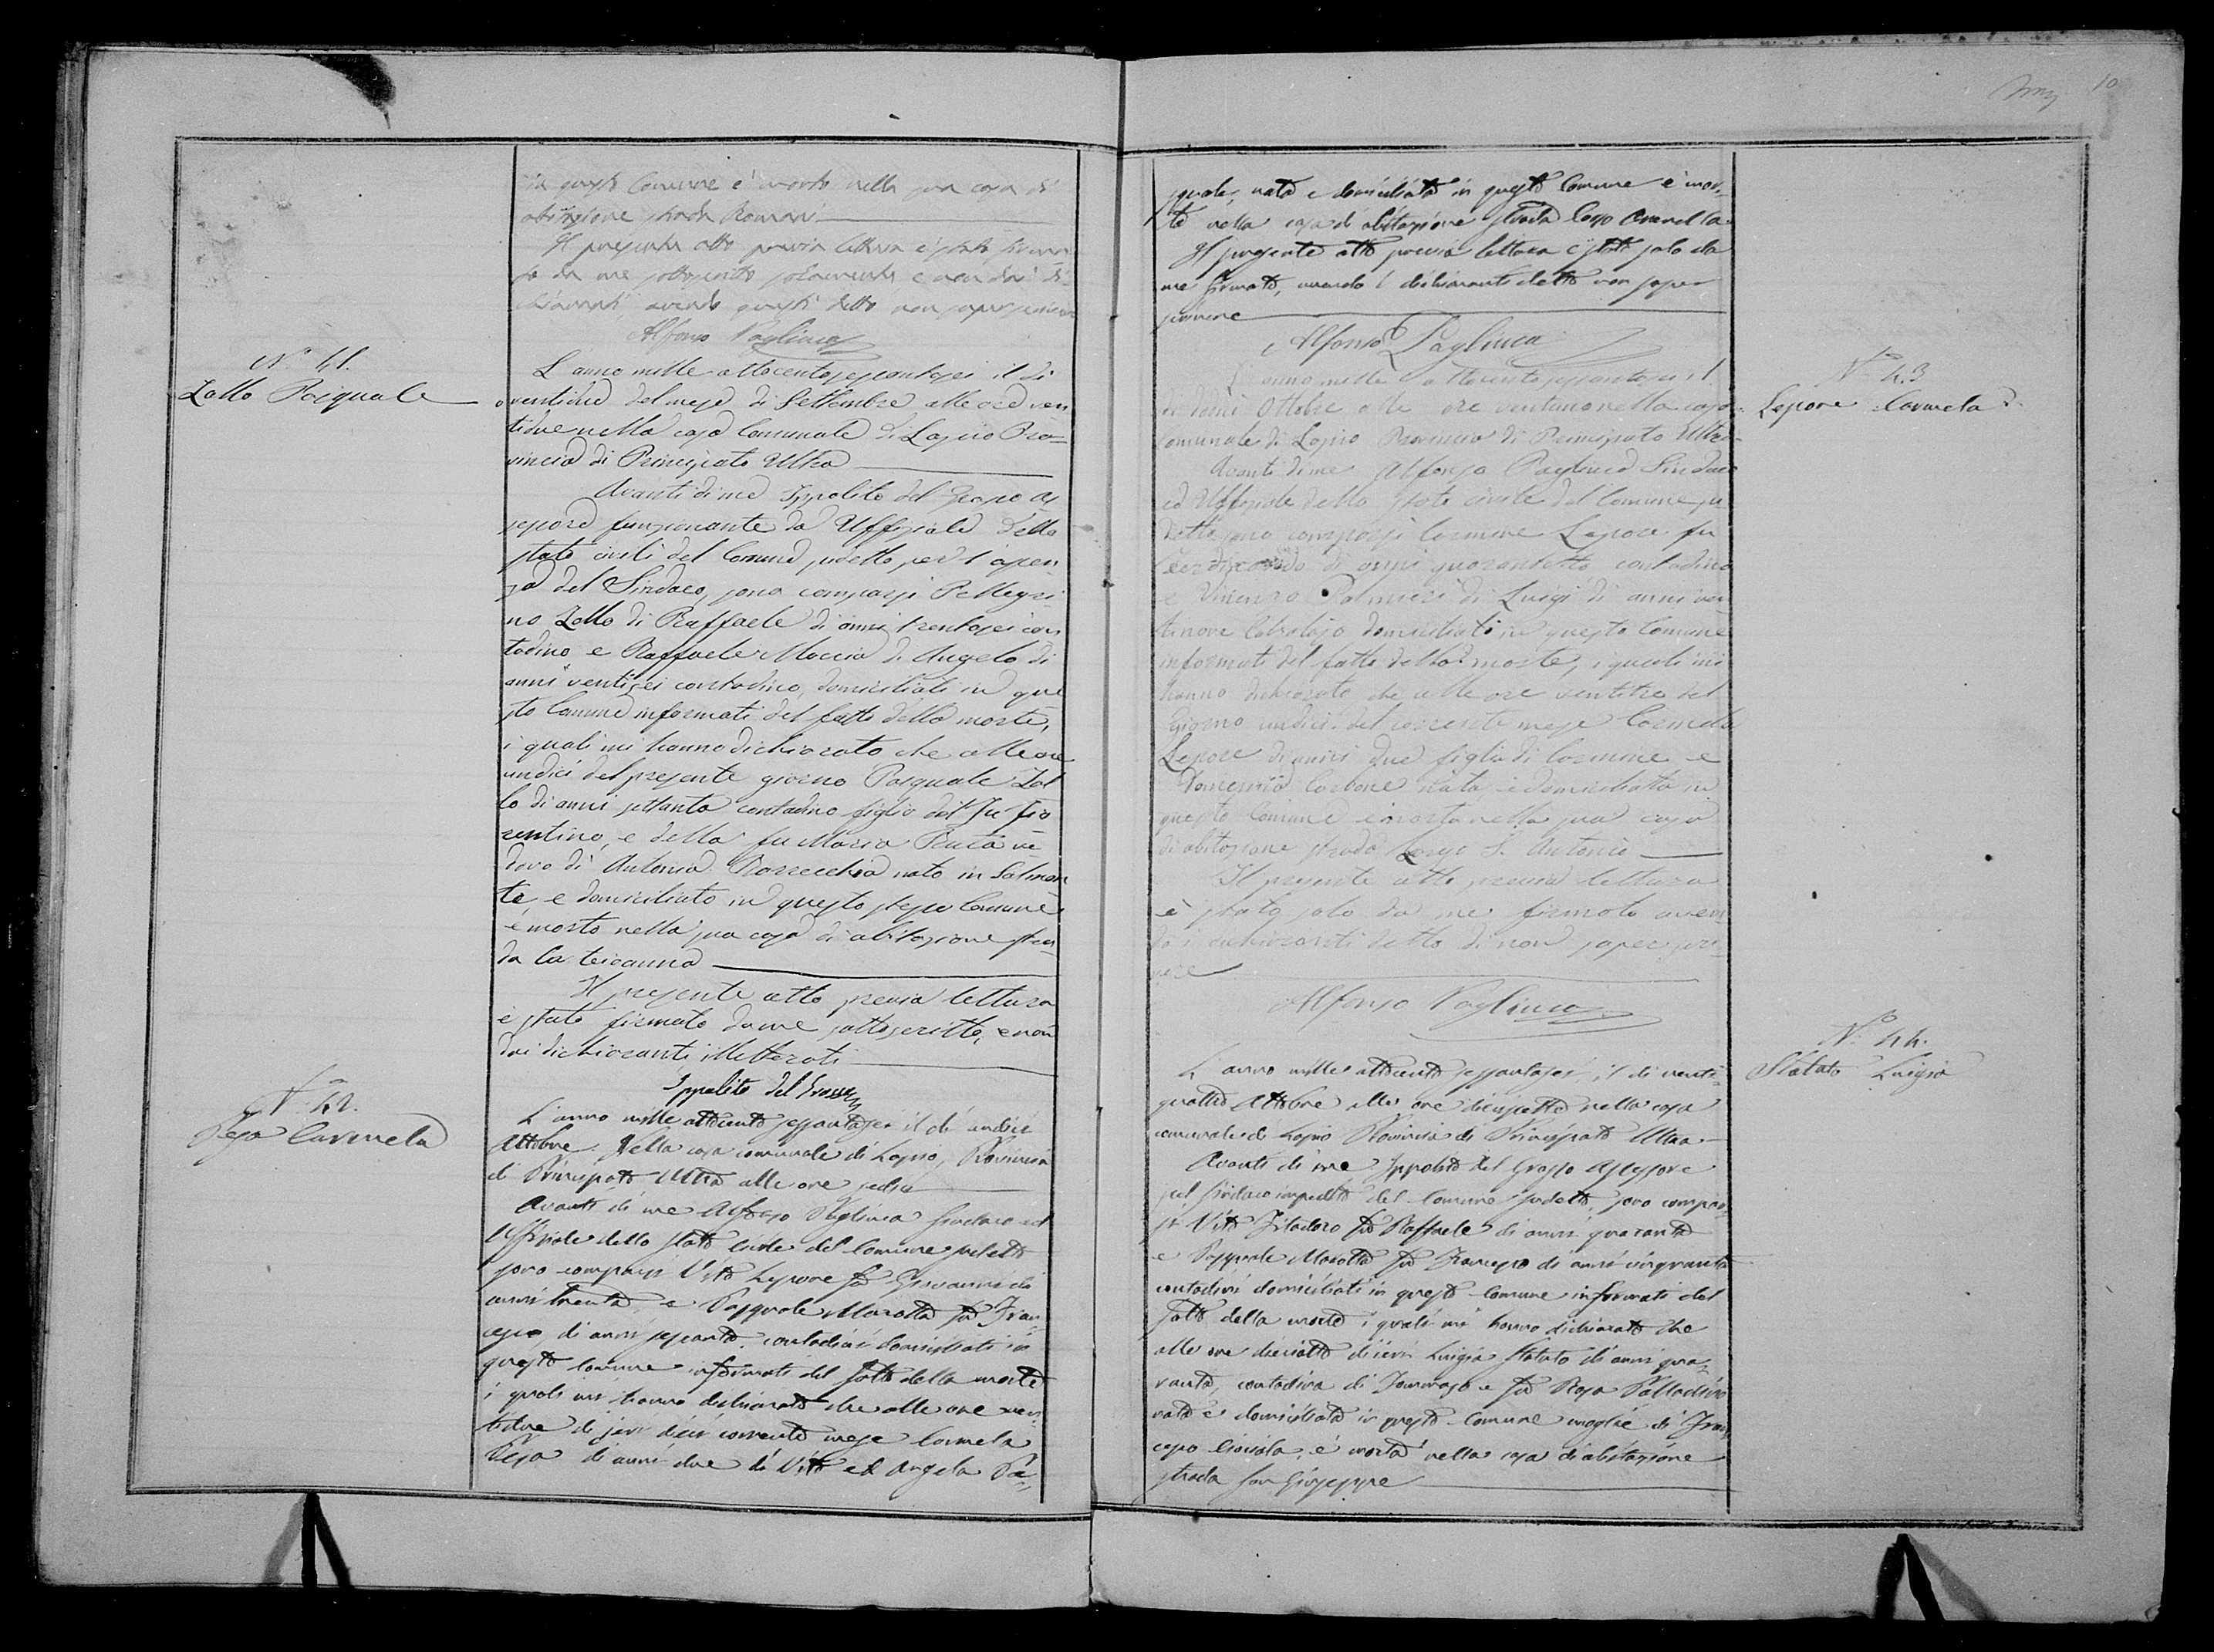 in questo Comune è morto nella sua casa di
abitazione strada Romani
Il presente atto previa lettura è stato firma
to da me sottoscritto solamente, e non dai di
chiaranti, avendo questi detto non saper scrivere
Alfonso Pagliuca
N.º 41.
Zollo Pasquale
L'anno mille ottocento sessantasei il di
ventidue del mese di Settembre alle ore ven
tidue nella casa Comunale di Lapio Pro=
vincia di Principato Ultra
Avanti di me Ippolito del Grosso As
sessore funzionante da Uffiziale dello
stato civile del Comune sudetto per l'assen
za del Sindaco, sono comparsi Pellegri
no Zollo di Raffaele di anni trentasei con
tadino e Raffaele Moccia di Angelo di
anni ventisei contadino, domiciliati in que
sto Comune informati del fatto della morte,
i quali mi hanno dichiarato che alle ore
undici del presente giorno Pasquale Zol
lo di anni settanta contadino figlio del fu Fio
rentino, e della fu Maria Penta ve
dovo di Antonia nato in Salmen
ta, e domiciliato in questo stesso Comune
è morto nella sua casa di abitazione stra
da
Il presente atto previa lettura
è stato firmato da me sottoscritto, e non
dai dichiaranti illetterati
Ippolito del Grosso
N.º 42.
Pesa Carmela
L'anno mille ottocento sessantasei il dì undici
Ottobre. Nella casa comunale di Lapio, Provincia
di Principato Ultra alle ore sedici
Avanti di me Alfonso Pagliuca Sindaco ed
Uffiziale dello stato civile del Comune sudetto
sono comparsi Vito Lepore fu Giovanni di
anni trenta, e Pasquale Marotta fu Fran
cesco di anni sessanta, contadini domiciliati in
questo comune informati del fatto della morte
i quali mi hanno dichiarato che alle ore ven
tidue di jeri dieci corrente mese Carmela
Pesa di anni due di Vito ed Angela Pa-
10
squale, nata e domiciliata in questo Comune è mor
ta nella casa di abitazione strada
Il presente atto previa lettura è stato solo da
me firmato, avendo i dichiaranti detto non saper
scrivere
Alfonso Pagliuca
N.º 43
Lepore Carmela
L'anno mille ottocento sessantasei il
di Ottobre alle ore ventuno nella casa
comunale di Lapio Provincia di Principato Ultra
Avanti di me Alfonso Pagliuca Sindaco
ed Uffiziale dello stato civile del Comune su
detto sono comparsi Carmine Lepore fu
di anni quarantotto contadino
e Vincenzo Palmieri di Luigi di anni ven
tinove domiciliati in questo Comune
informati del fatto della morte, i quali mi
hanno dichiarato che alle ore ventitre del
giorno undici del corrente mese Carmela
Lepore di anni due figlia di Carmine e
Carbone nata, e domiciliata in
questo comune è morta nella sua casa
di abitazione strada Largo S. Antonio
Il presente atto previa lettura
è stato solo da me firmato aven
do i dichiaranti detto di non saper scri
vere
Alfonso Pagliuca
N.º 44.
Statuto Luigia
L'anno mille ottocento sessantasei, il di venti
quattro Ottobre alle ore diciassette nella casa
comunale di Lapio Provincia di Principato Ultra
Avanti di me Ippolito del Grosso Assessore
pel Sindaco impedito del Comune sudetto, sono compar
si Vito fu Raffaele di anni quaranta
e Pasquale Marotta fu Francesco di anni cinquanta
contadini domiciliati in questo Comune informati del
fatto della morte i quali mi hanno dichiarato che
alle ore diciotto di jeri Luigia Statuto di anni qua
ranta, contadina di Tommaso e fu Rosa Palladino
nata e domiciliata in questo Comune moglie di Fran
cesco è morta nella casa di abitazione
strada San Giuseppe